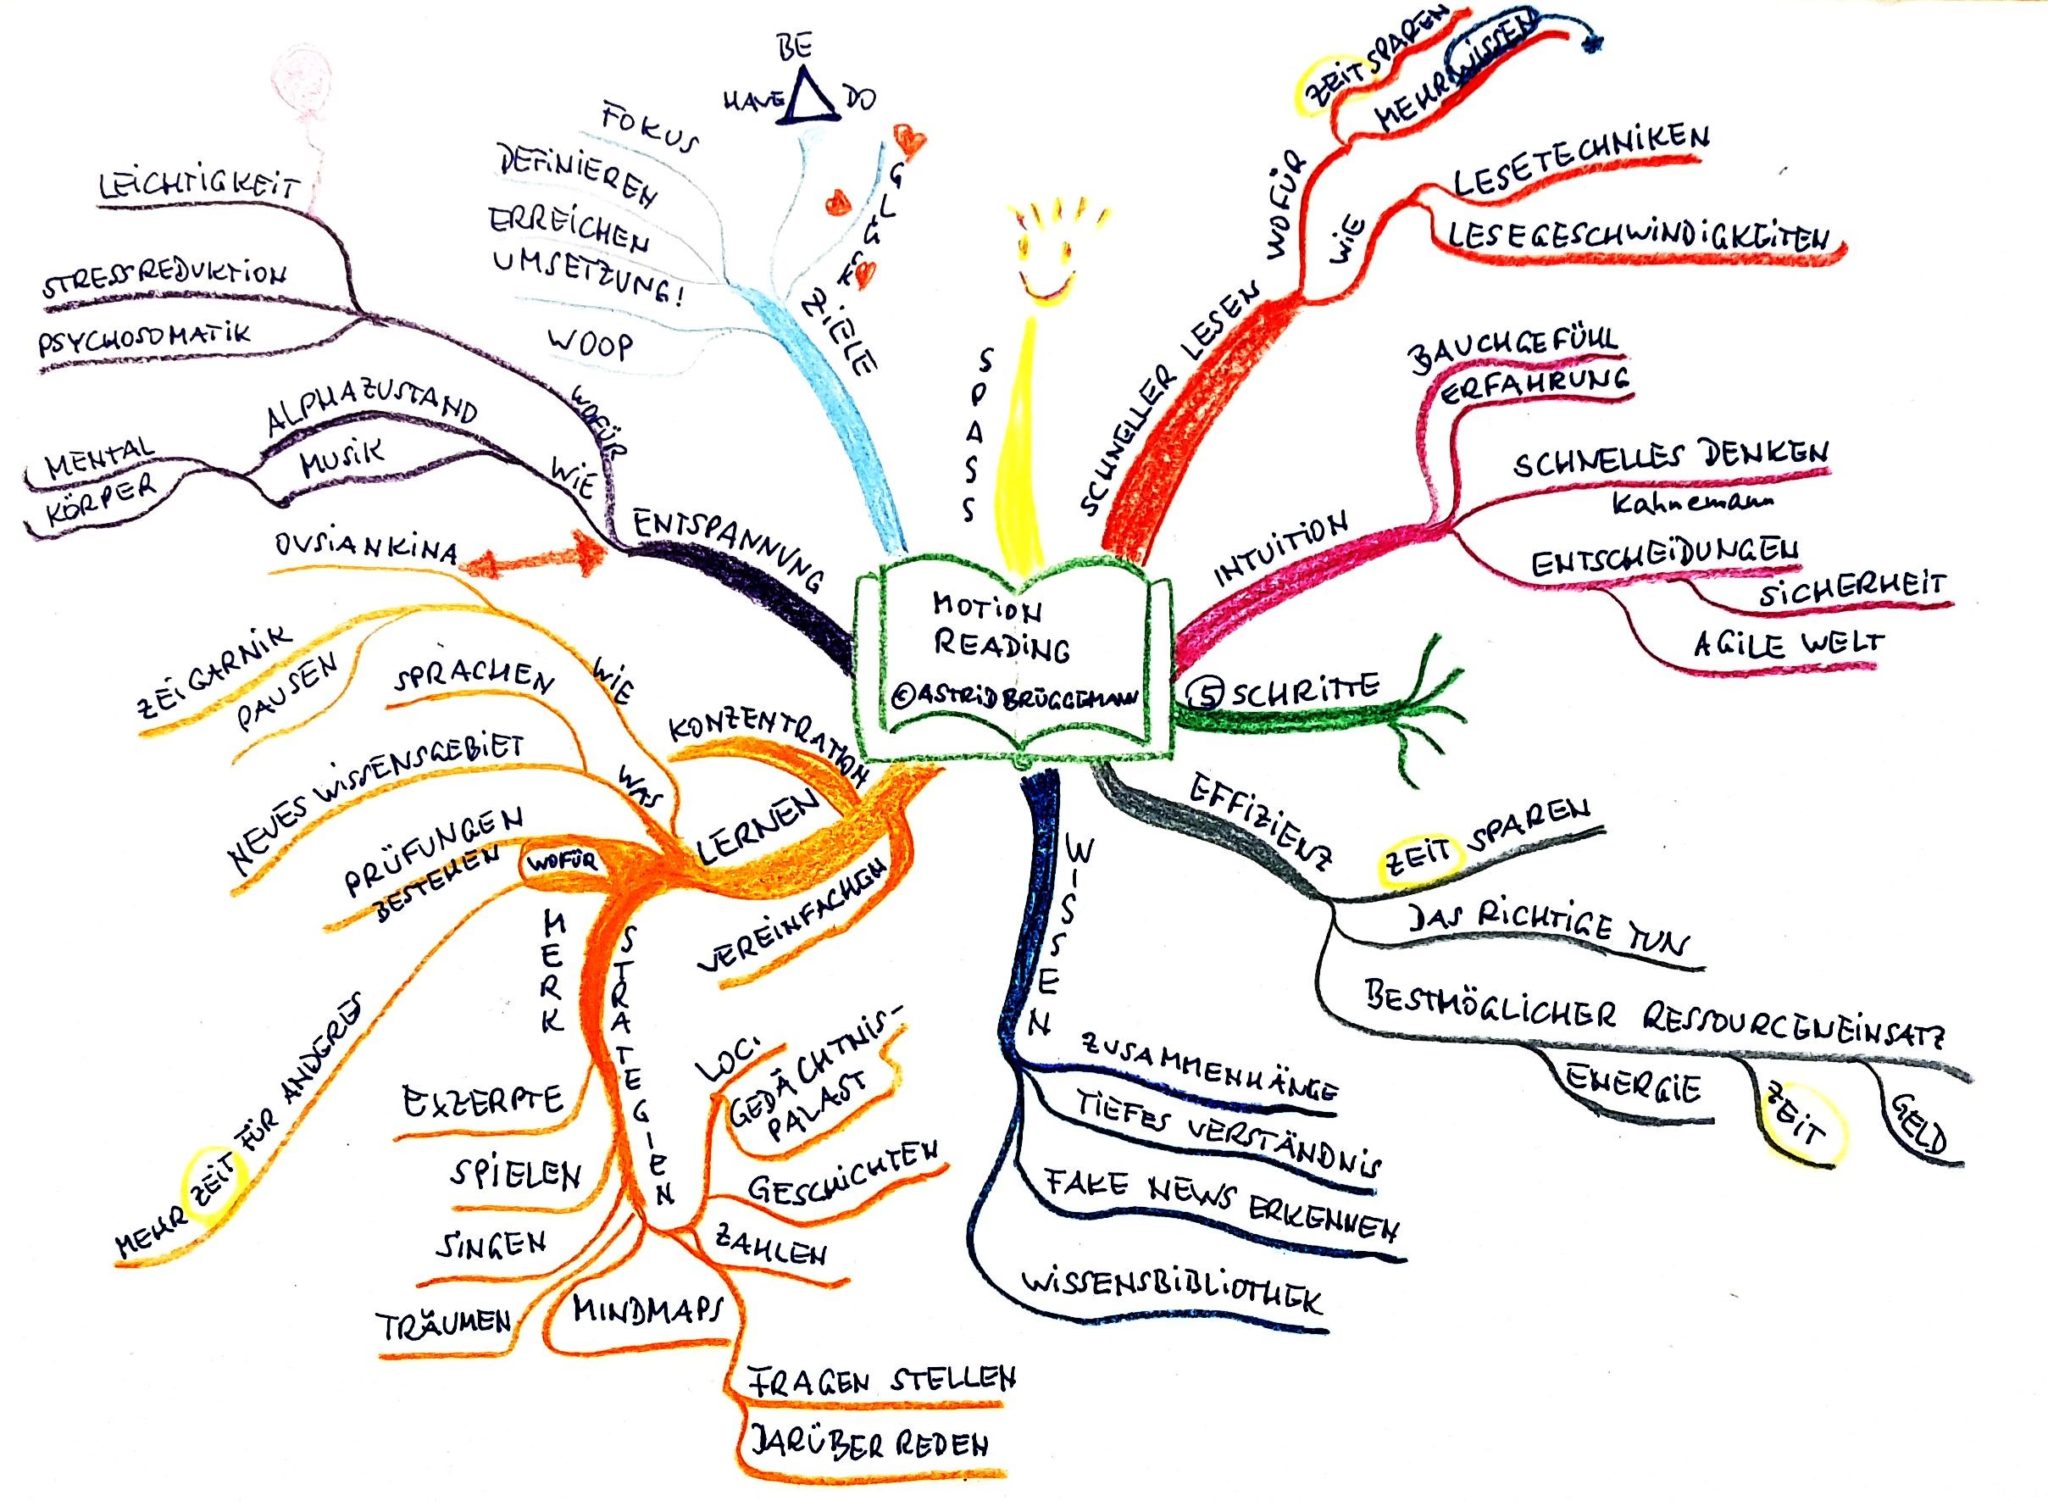 MOTION
READING
© ASTRID BRÜGGEMANN
SPASS
SCHNELLER LESEN
WOFÜR
ZEIT SPAREN
MEHR WISSEN
WIE
LESETECHNIKEN
LESEGESCHWINDIGKEITEN
INTUITION
BAUCHGEFÜHL
ERFAHRUNG
SCHNELLES DENKEN
Kahnemann
ENTSCHEIDUNGEN
SICHERHEIT
AGILE WELT
5 SCHRITTE
EFFIZIENZ
ZEIT SPAREN
DAS RICHTIGE TUN
BESTMÖGLICHER RESSOURCENEINSATZ
ENERGIE
ZEIT
GELD
WISSEN
ZUSAMMENHÄNGE
TIEFES VERSTÄNDNIS
FAKE NEWS ERKENNEN
WISSENSBIBLIOTHEK
LERNEN
KONZENTRATION
VEREINFACHEN
MERK
STRATEGIEN
LOCI
GEDÄCHTNIS-
PALAST
GESCHICHTEN
ZAHLEN
FRAGEN STELLEN
DARÜBER REDEN
MINDMAPS
TRÄUMEN
SINGEN
SPIELEN
EXZERPTE
WOFÜR
PRÜFUNGEN
BESTEHEN
MEHR ZEIT FÜR ANDERES
WAS
SPRACHEN
NEUES WISSENSGEBIET
WIE
OVSIANKINA
ZEIGARNIK
PAUSEN
ENTSPANNUNG
WIE
ALPHAZUSTAND
MUSIK
MENTAL
KÖRPER
WOFÜR
LEICHTIGKEIT
STRESSREDUKTION
PSYCHOSOMATIK
ZIELE
FOKUS
DEFINIEREN
ERREICHEN
UMSETZUNG!
WOOP
BE
HAVE
DO
GLÜCK